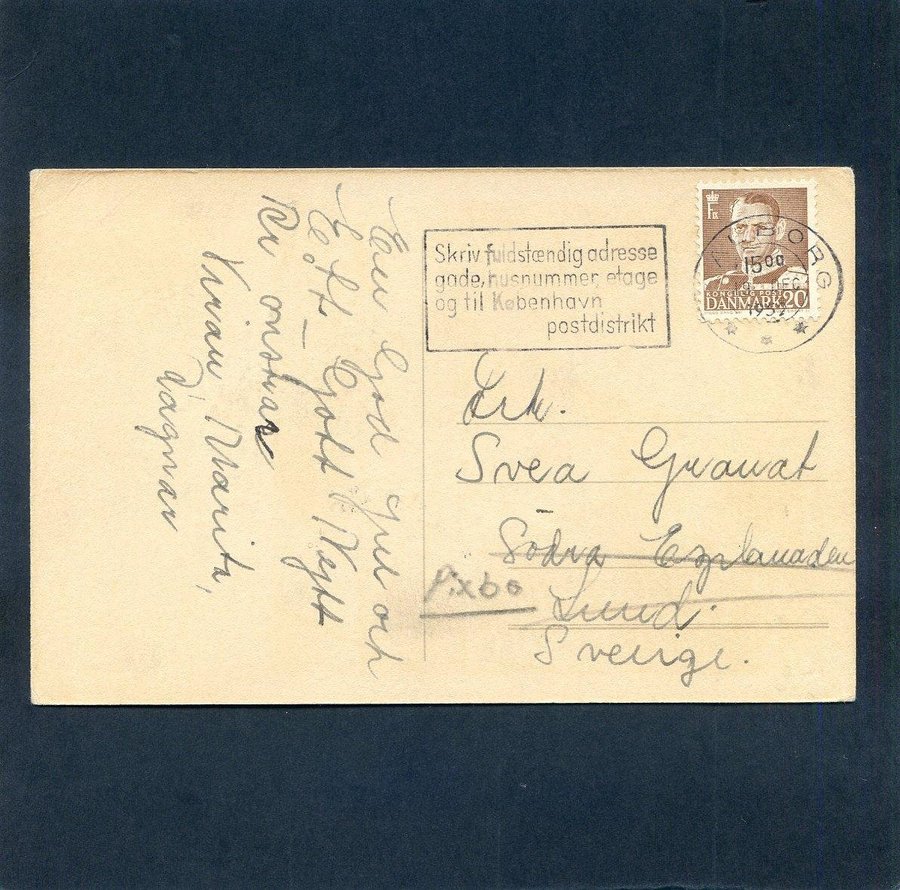 En God Jul och
Ett Gott Nytt
År önskar
Vivian, Marita,
Dagmar
Skriv fuldstændig adresse
gade, husnummer, etage
og til København
postdistrikt
KONGELIG POST
DANMARK 20
BORG
15 00
DEC
Frk.
Svea Granat
Södra Esplanaden
Pixbo
Lund.
Sverige.